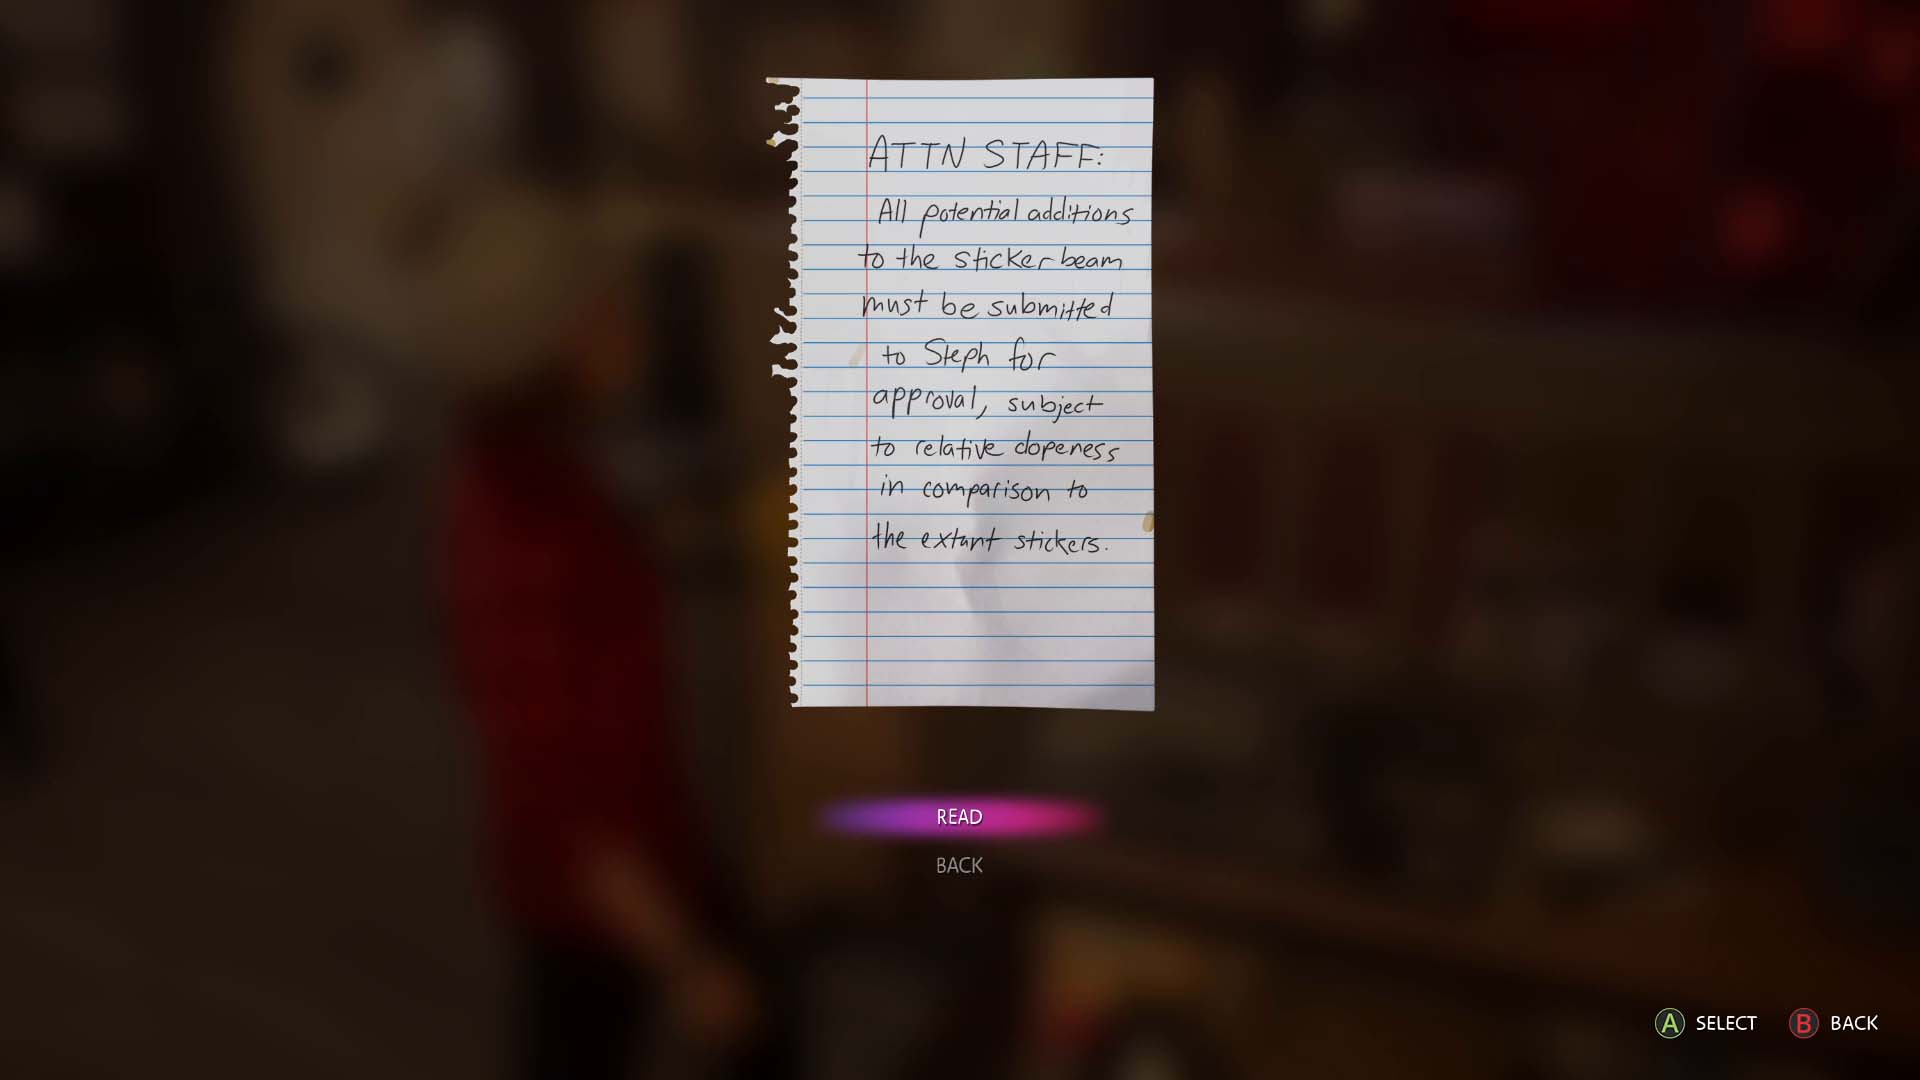 ATTN STAFF:
All potential additions
to the sticker beam
must be submitted
to Steph for
approval, subject
to relative dopeness
in comparison to
the extant stickers.
READ
BACK
A SELECT B BACK